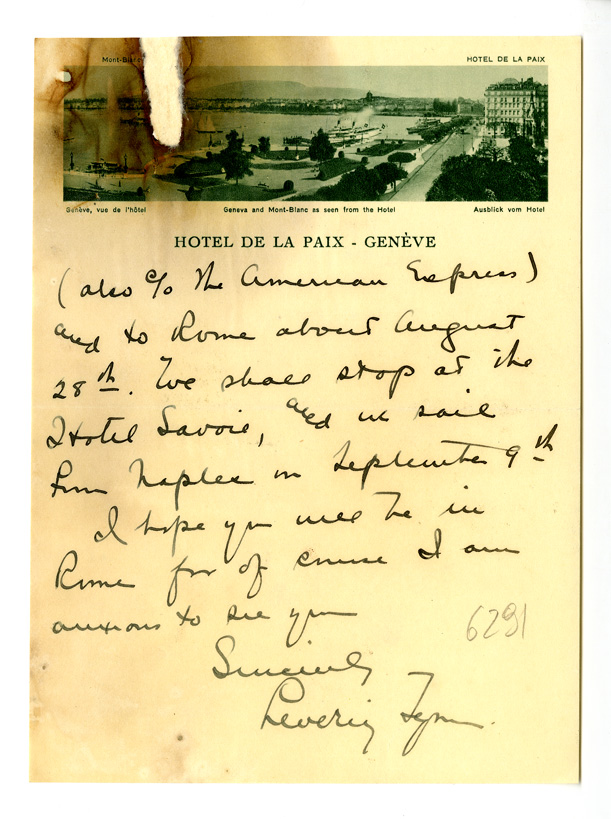 Mont-Blanc
HOTEL DE LA PAIX
Genève, vue de l'hôtel
Geneva and Mont-Blanc as seen from the Hotel
Ausblick vom Hotel
HOTEL DE LA PAIX - GENÈVE
(also c/o The American Express)
and to Rome about August
28th. We shall stop at the
Hotel Savoie, and we sail
from Naples on September 9th
I hope you will be in
Rome for of course I am
anxious to see you
6291
Sincerely